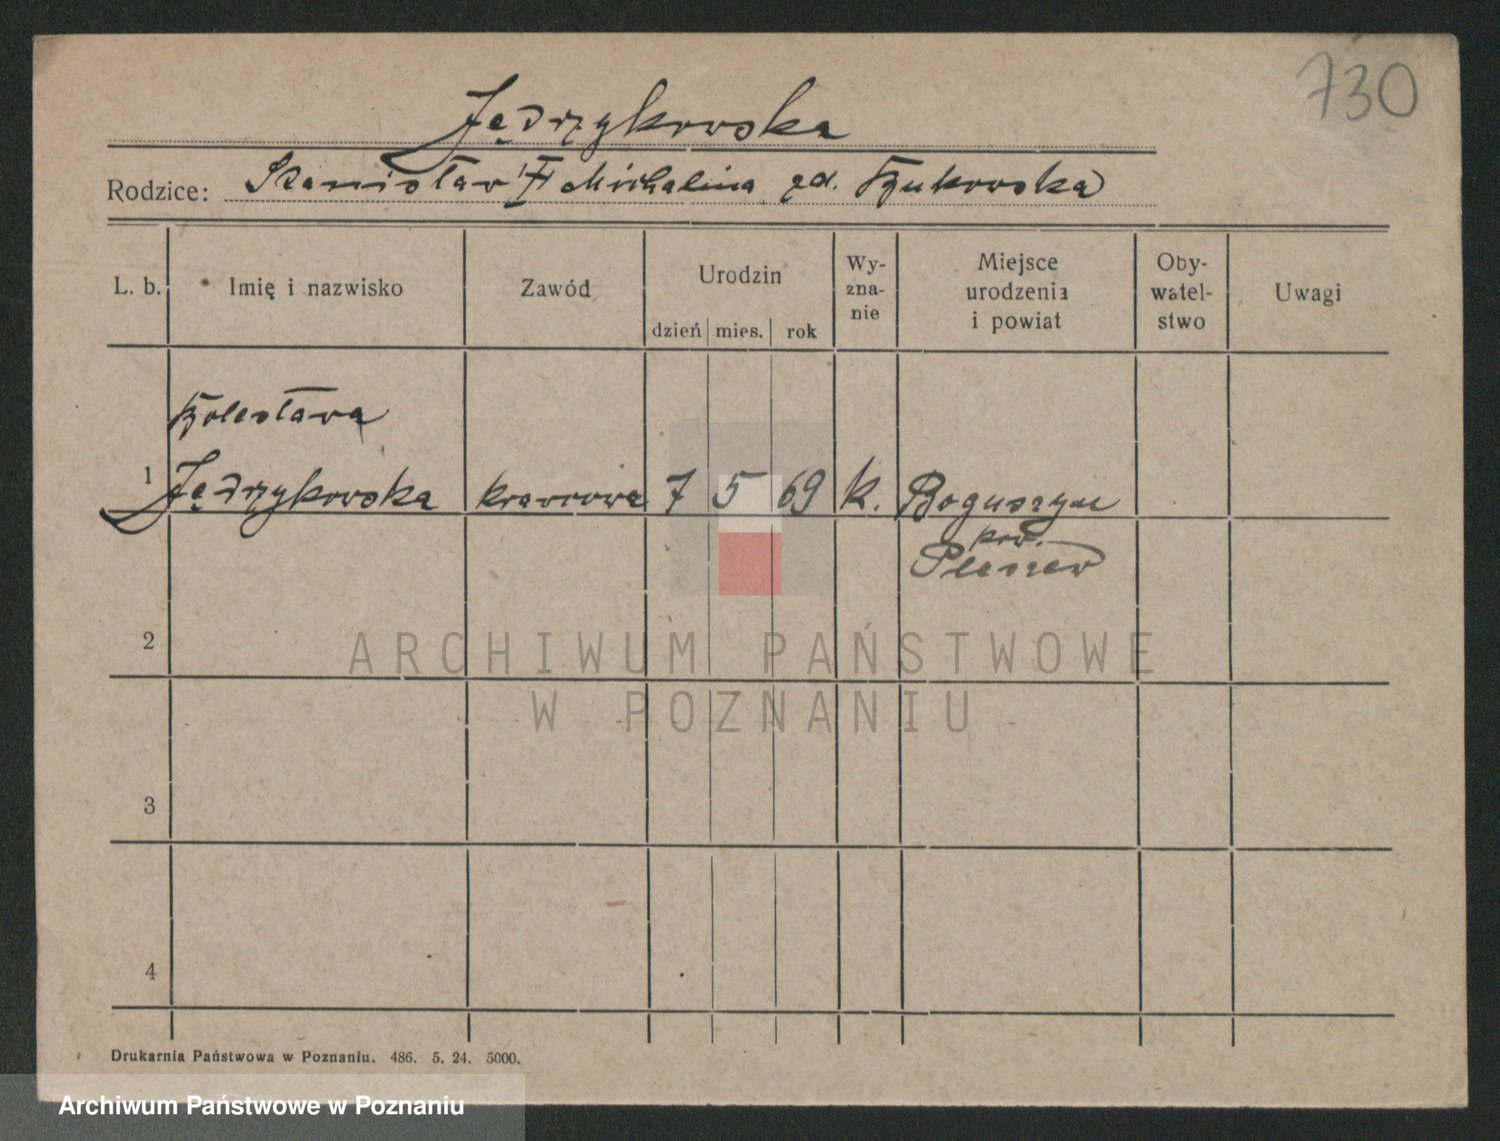 730
Jędrzykowska
Rodzice: Stanisław i Michalina zd. Bukowska
L. b. Imię i nazwisko Zawód Urodzin dzień mies. rok Wy-zna-nie Miejsce urodzenia i powiat Oby-watel-stwo Uwagi
Bolesława
1 Jędrzykowska krawcowa 7 5 69 k. Boguszyn
pow.
Pleszew
2
ARCHIWUM PAŃSTWOWE
W POZNANIU
3
4
Drukarnia Państwowa w Poznaniu. 486. 5. 24. 5000.
Archiwum Państwowe w Poznaniu